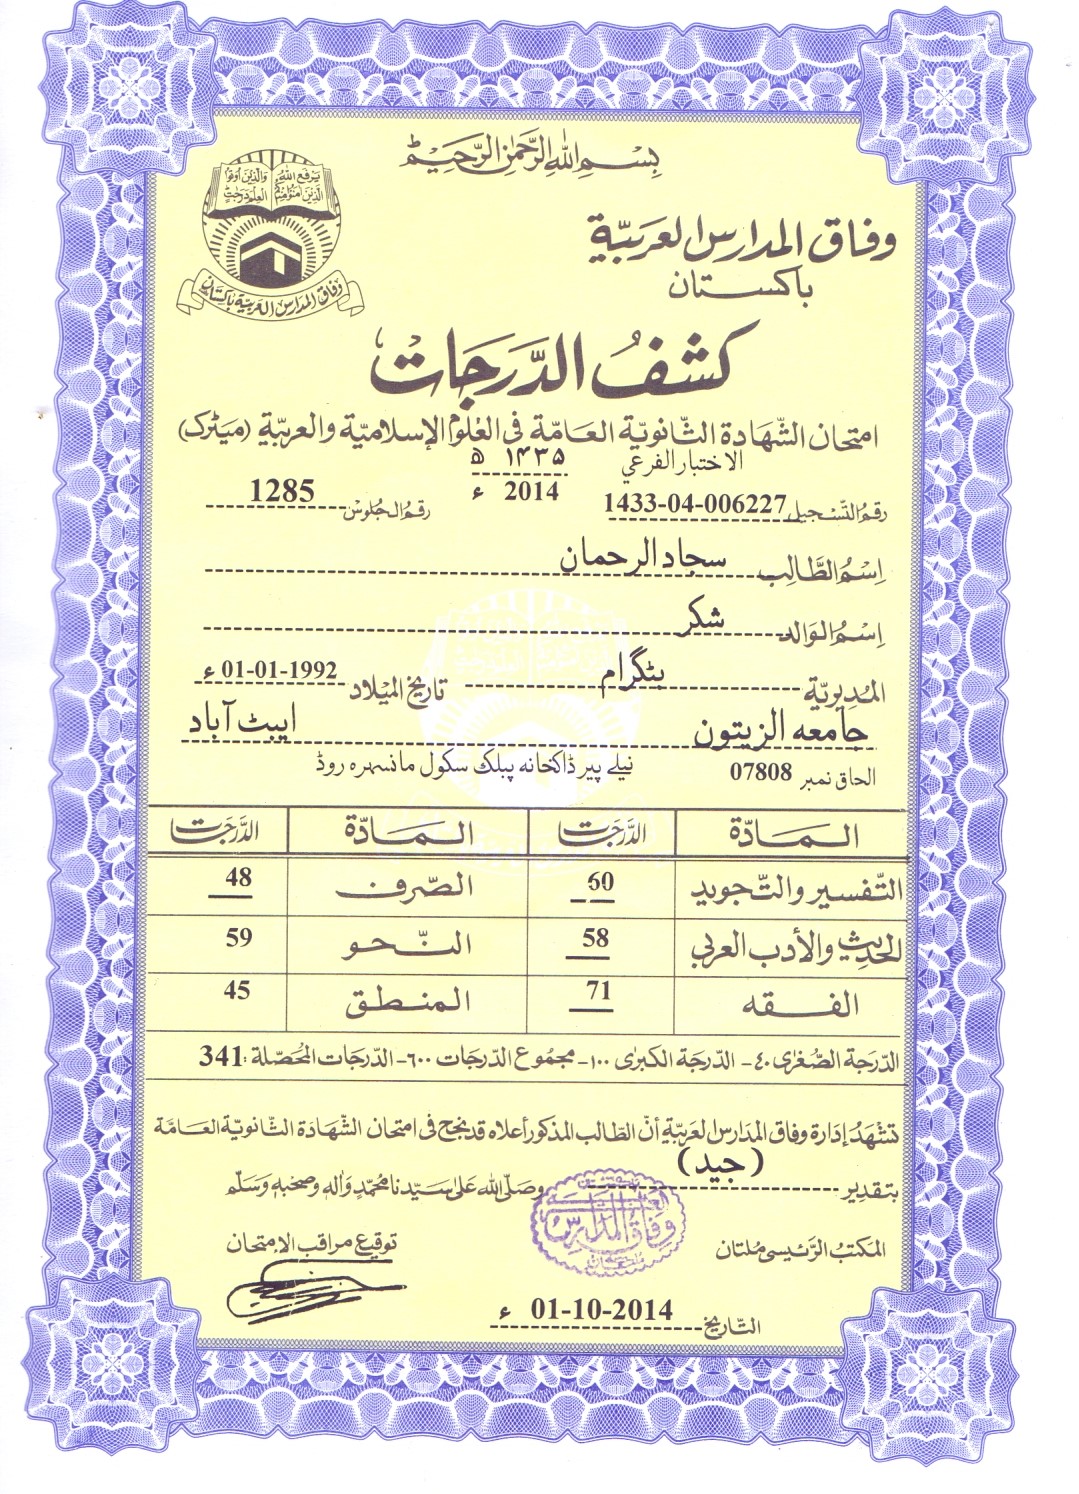 بِسْمِ اللهِ الرَّحْمٰنِ الرَّحِيْمِ
يَرفع اللّٰهُ الّذِينَ اٰمَنُوا مِنكُم وَالّذِينَ اُوتُوا العِلمَ دَرَجٰتٍ
وفاق المدارس العربية باكستان
وفاق المدارس العربيّة
باكستان
كشفُ الدَّرَجَات
امتحان الشّهادة الثّانويّة العامّة فى العُلوم الإسلاميّة والعربيّة (میٹرک)
الاختبار الفرعي ۱۴۳۵ ھ
رقم التّسجيل 1433-04-006227 2014 ء رقم الجلوس 1285
اِسْمُ الطَّالِب سجاد الرحمان
اِسْمُ الوَالد شکر
المُديريّة بٹگرام تاريخ الميلاد 01-01-1992 ء
جامعه الزيتون ایبٹ آباد
الحاق نمبر 07808 نیلے پیر ڈاکخانہ پبلک سکول مانسہرہ روڈ
المَادّة الدَّرَجَات المَادّة الدَّرَجَات
التّفسير والتّجويد 60 الصّرف 48
الحديث والأدب العربي 58 النّحو 59
الفقه 71 المنطق 45
الدّرجة الصّغرٰى ۴۰- الدّرجة الكبرٰى ۱۰۰- مجموع الدّرجات ۶۰۰- الدّرجات المُحَصّلة: 341
تشْهَدُ إدارة وفاق المَدَارس العربيّة أنّ الطّالب المذكور أعلاه قد نجح فى امتحان الشّهادة الثّانويّة العامّة
بتقدير (جيد) وصلّى الله على سيّدنا محمّدٍ وَاٰلهٖ وصحبهٖ وَسَلّم
وفاق المدارس
المكتب الرّئيسى مُلتان توقيع مراقب الامتحان
التّاريخ 01-10-2014 ء